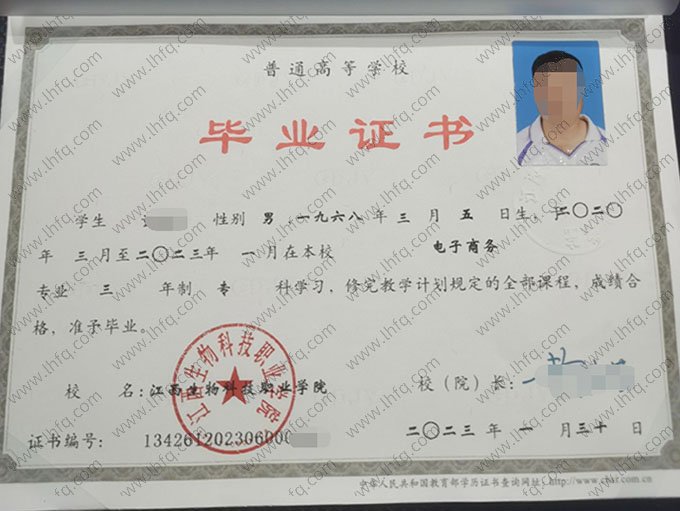 普通高等学校
毕业证书
学生 性别 男，一九六八年 三 月 五 日生，于二〇二〇
年 三月至二〇二三年 一月在本校 电子商务
专业 三 年制 专 科学习，修完教学计划规定的全部课程，成绩合
格，准予毕业。
江西生物科技职业学院
校 名：江西生物科技职业学院 校（院）长：
证书编号： 134261202306000
二〇二三 年 一 月 三十 日
中华人民共和国教育部学历证书查询网址：http://www.chsi.com.cn
www.lhfq.com